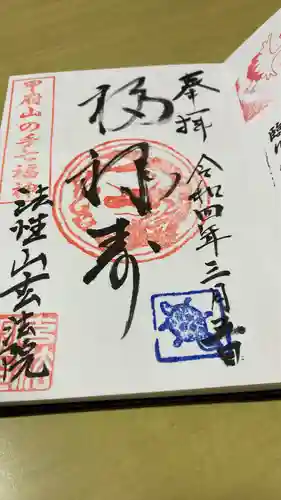 奉拝
令和四年三月吉日
福禄寿
甲府山の手七福神
法性山玄法院